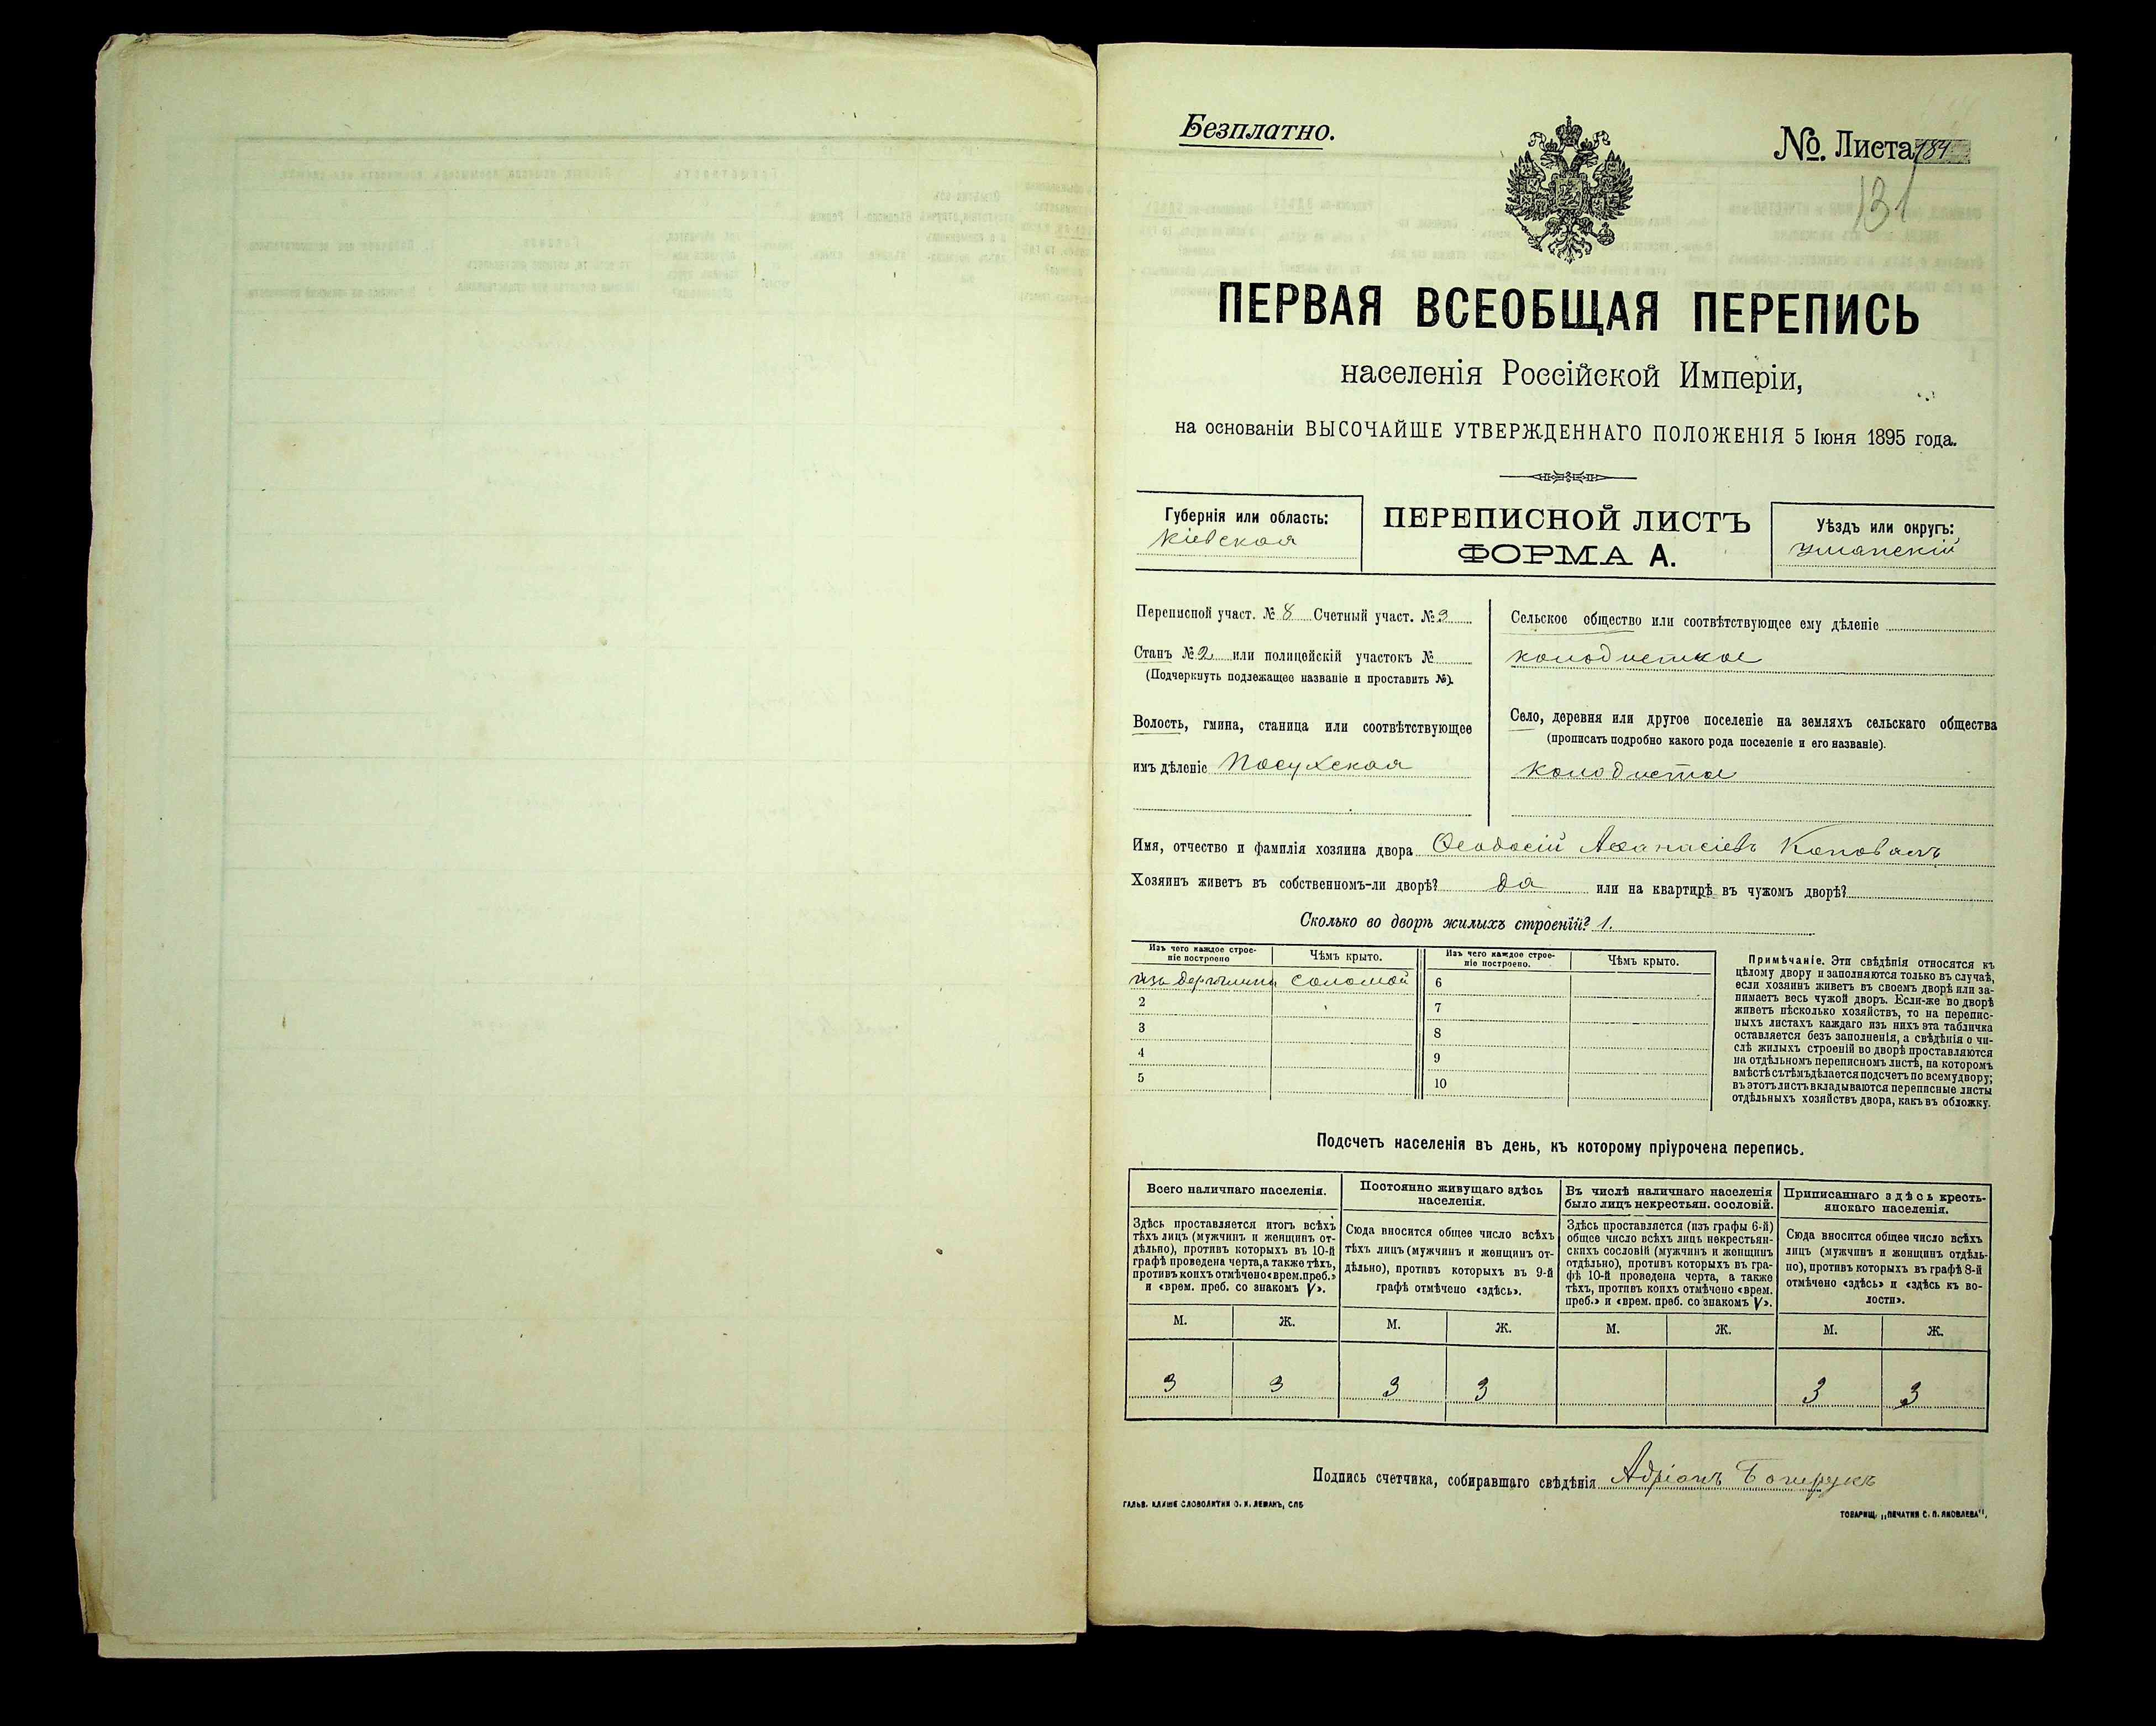 Безплатно.
№. Листа 184
131
ПЕРВАЯ ВСЕОБЩАЯ ПЕРЕПИСЬ
населенія Россійской Имперіи,
на основаніи ВЫСОЧАЙШЕ УТВЕРЖДЕННАГО ПОЛОЖЕНІЯ 5 Іюня 1895 года.
Губернія или область:
Кіевская
ПЕРЕПИСНОЙ ЛИСТЪ
ФОРМА А.
Уѣздъ или округъ:
Уманскій
Переписной участ. № 8 Счетный участ. № 3
Станъ № 2 или полицейскій участокъ №
(Подчеркнуть подлежащее названіе и проставить №).
Волость, гмина, станица или соотвѣтствующее
имъ дѣленіе Посухская
Сельское общество или соотвѣтствующее ему дѣленіе
колодисткое
Село, деревня или другое поселеніе на земляхъ сельскаго общества
(прописать подробно какого рода поселеніе и его названіе).
колодистое
Имя, отчество и фамилія хозяина двора Феодосій Афанасіевъ Коновалъ
Хозяинъ живетъ въ собственномъ-ли дворѣ? да или на квартирѣ въ чужомъ дворѣ?
Сколько во дворѣ жилыхъ строеній? 1.
Изъ чего каждое строе-
ніе построено
Чѣмъ крыто.
Изъ чего каждое строе-
ніе построено.
Чѣмъ крыто.
изъ соломой 6
2 7
3 8
4 9
5 10
Примѣчаніе. Эти свѣдѣнія относятся къ
цѣлому двору и заполняются только въ случаѣ,
если хозяинъ живетъ въ своемъ дворѣ или за-
нимаетъ весь чужой дворъ. Если-же во дворѣ
живетъ нѣсколько хозяйствъ, то на перепис-
ныхъ листахъ каждаго изъ нихъ эта табличка
оставляется безъ заполненія, а свѣдѣнія о чи-
слѣ жилыхъ строеній во дворѣ проставляются
на отдѣльномъ переписномъ листѣ, на которомъ
вмѣстѣ съ тѣмъ дѣлается подсчетъ по всему двору;
въ этотъ листъ вкладываются переписные листы
отдѣльныхъ хозяйствъ двора, какъ въ обложку.
Подсчетъ населенія въ день, къ которому пріурочена перепись.
Всего наличнаго населенія.
Здѣсь проставляется итогъ всѣхъ
тѣхъ лицъ (мужчинъ и женщинъ от-
дѣльно), противъ которыхъ въ 10-й
графѣ проведена черта, а также тѣхъ,
противъ коихъ отмѣчено «врем. преб.»
и «врем. преб. со знакомъ V».
Постоянно живущаго здѣсь
населенія.
Сюда вносится общее число всѣхъ
тѣхъ лицъ (мужчинъ и женщинъ от-
дѣльно), противъ которыхъ въ 9-й
графѣ отмѣчено «здѣсь».
Въ числѣ наличнаго населенія
было лицъ некрестьян. сословій.
Здѣсь проставляется (изъ графы 6-й)
общее число всѣхъ лицъ некрестьян-
скихъ сословій (мужчинъ и женщинъ
отдѣльно), противъ которыхъ въ гра-
фѣ 10-й проведена черта, а также
тѣхъ, противъ коихъ отмѣчено «врем.
преб.» и «врем. преб. со знакомъ V».
Приписаннаго здѣсь кресть-
янскаго населенія.
Сюда вносится общее число всѣхъ
лицъ (мужчинъ и женщинъ отдѣль-
но), противъ которыхъ въ графѣ 8-й
отмѣчено «здѣсь» и «здѣсь къ во-
лости».
М. Ж. М. Ж. М. Ж. М. Ж.
3 3 3 3 3 3
Подпись счетчика, собиравшаго свѣдѣнія Адріанъ
ГАЛЬВ. КЛИШЕ СЛОВОЛИТНИ О. И. ЛЕМАНЪ, СПБ
ТОВАРИЩ. „ПЕЧАТНЯ С. П. ЯКОВЛЕВА".